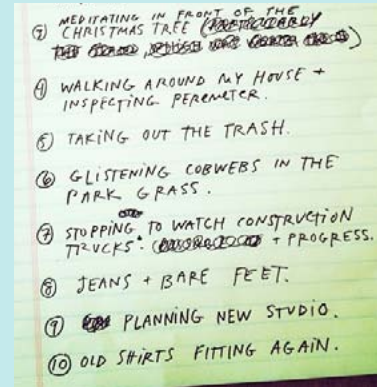 ③ MEDITATING IN FRONT OF THE
CHRISTMAS TREE (
④ WALKING AROUND MY HOUSE +
INSPECTING PEREMETER.
⑤ TAKING OUT THE TRASH.
⑥ GLISTENING COBWEBS IN THE
PARK GRASS.
⑦ STOPPING TO WATCH CONSTRUCTION
TRUCKS. + PROGRESS.
⑧ JEANS + BARE FEET.
⑨ PLANNING NEW STUDIO.
⑩ OLD SHIRTS FITTING AGAIN.